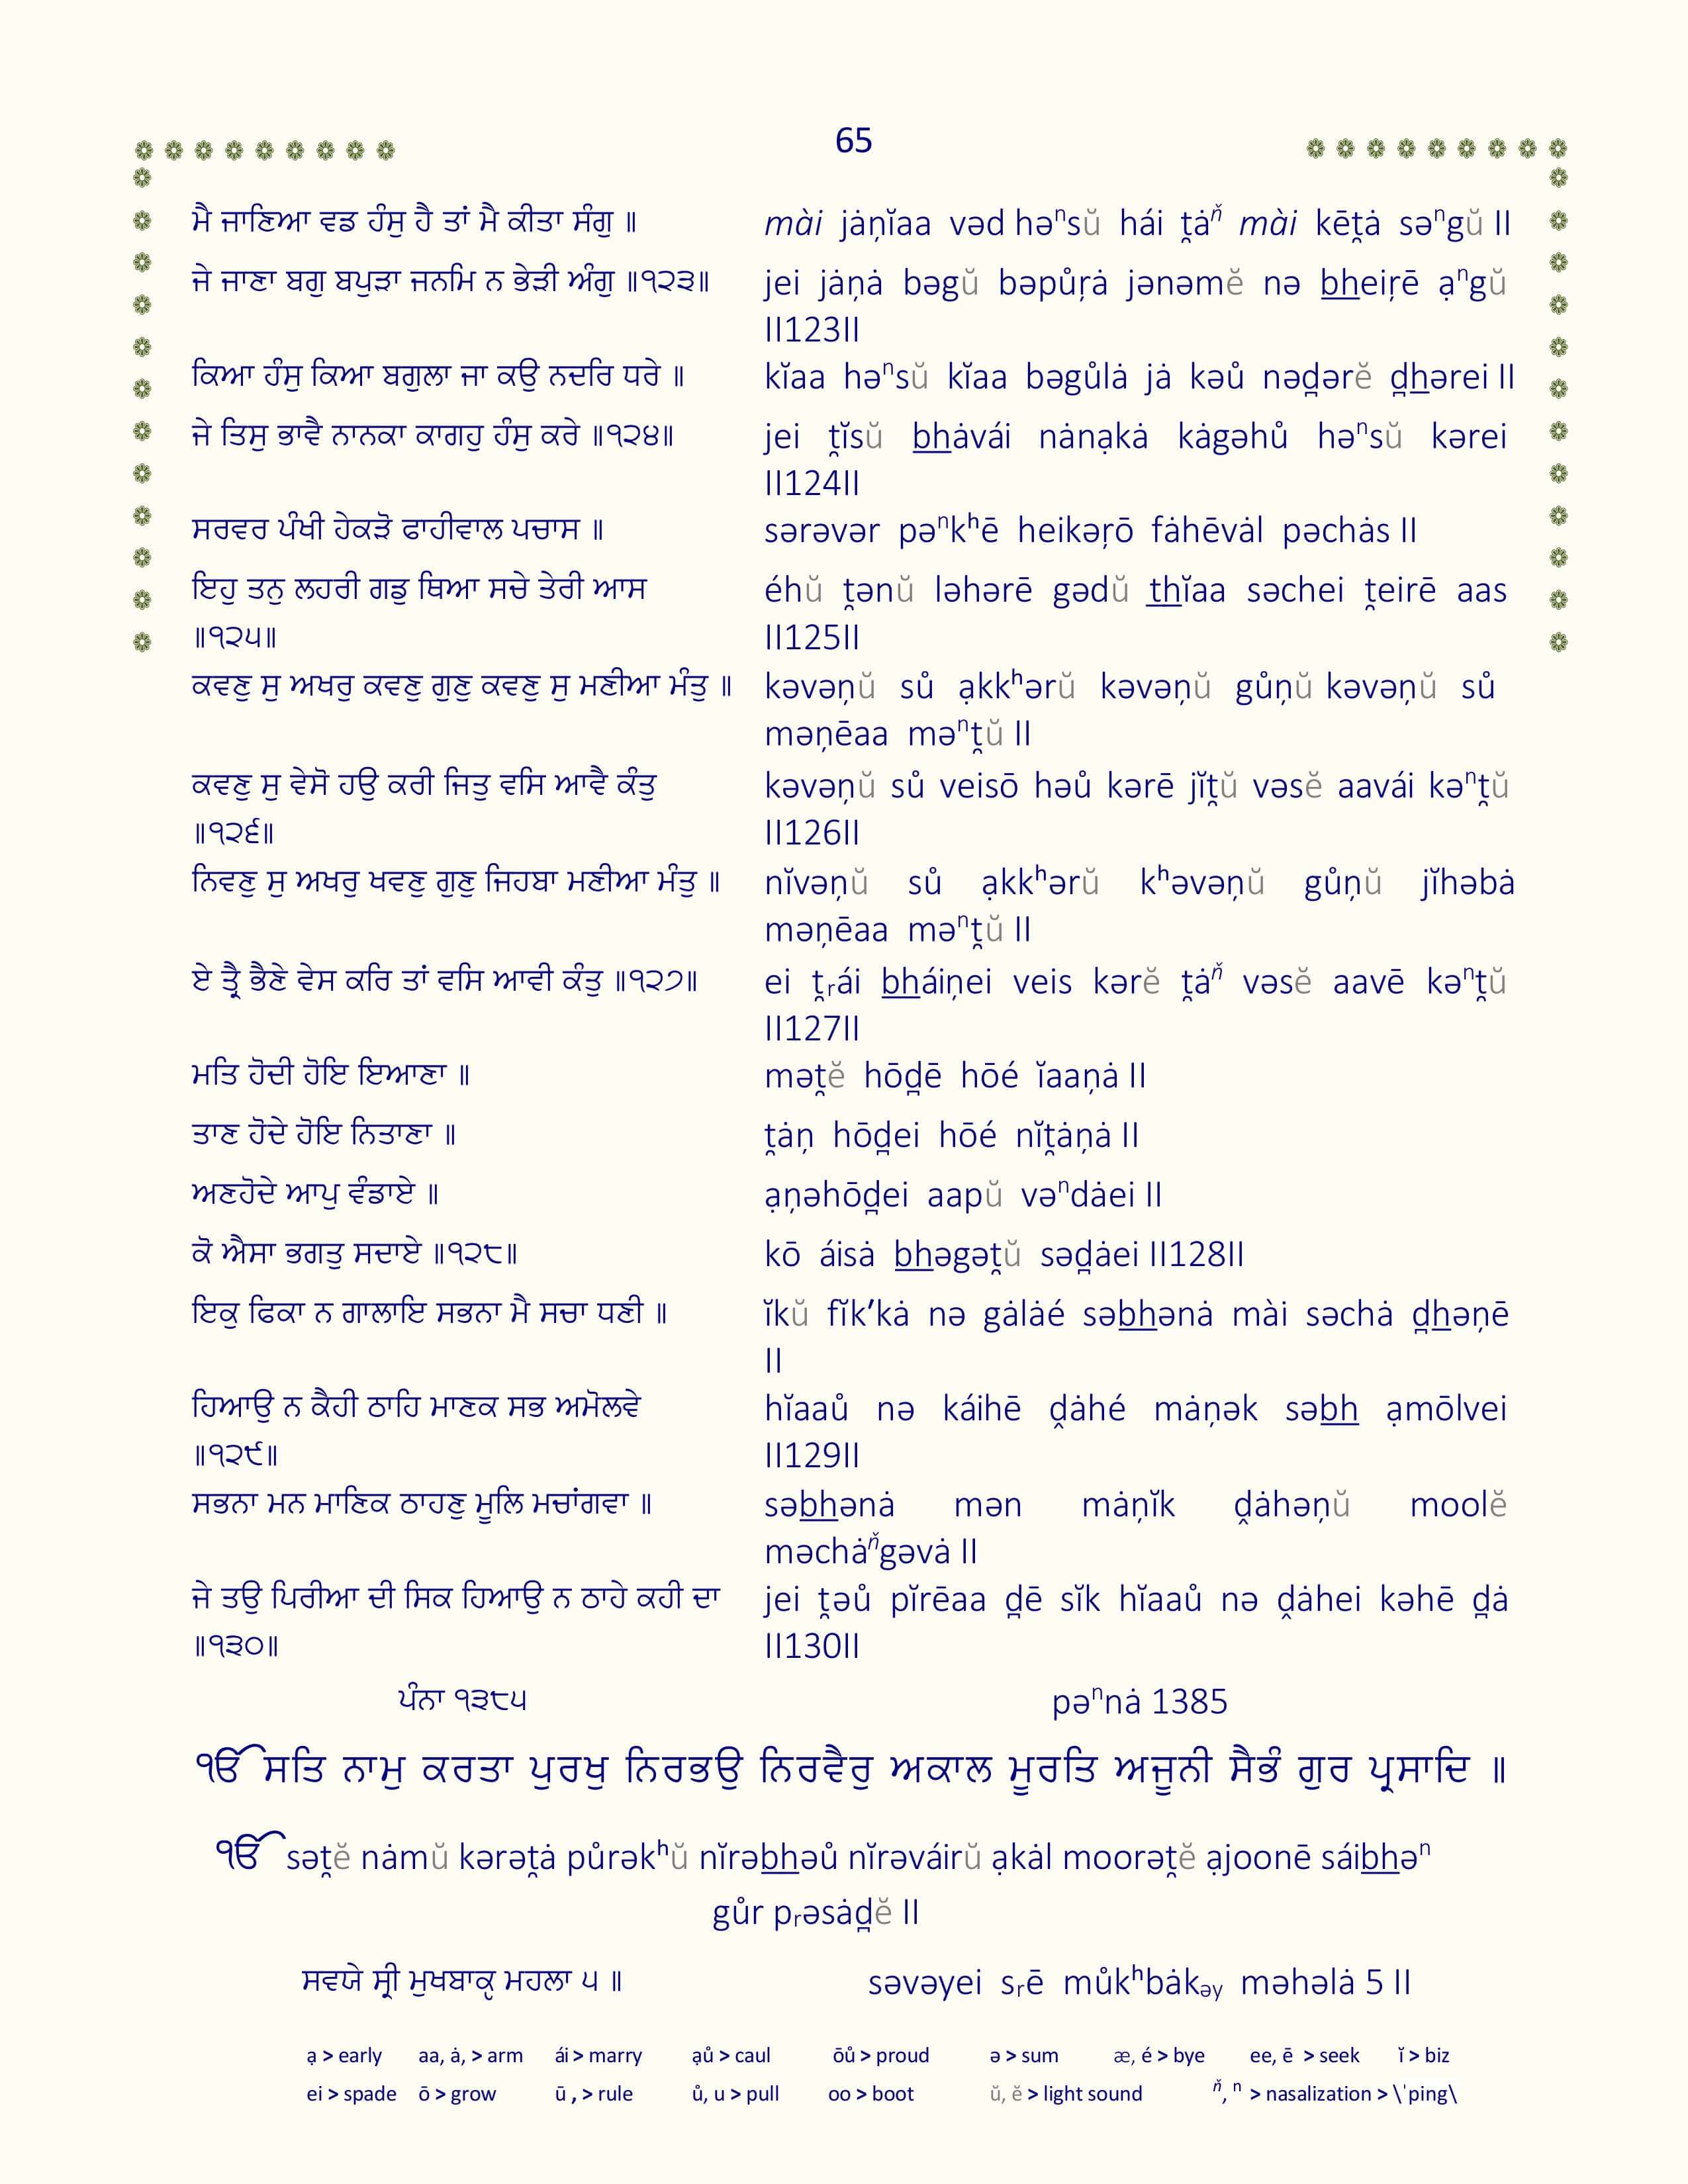 65
ਮੈ ਜਾਣਿਆ ਵਡ ਹੰਸੁ ਹੈ ਤਾਂ ਮੈ ਕੀਤਾ ਸੰਗੁ ॥
mài jȧṇĭaa vəd həⁿsŭ hái ṱȧᵑ̆ mài kēṱȧ səⁿgŭ II
ਜੇ ਜਾਣਾ ਬਗੁ ਬਪੁੜਾ ਜਨਮਿ ਨ ਭੇੜੀ ਅੰਗੁ ॥੧੨੩॥
jei jȧṇȧ bəgŭ bəpůṛȧ jənəmĕ nə bheiṛē ạⁿgŭ
II123II
ਕਿਆ ਹੰਸੁ ਕਿਆ ਬਗੁਲਾ ਜਾ ਕਉ ਨਦਰਿ ਧਰੇ ॥
kĭaa həⁿsŭ kĭaa bəgůlȧ jȧ kəů nəd̪ərĕ d̪hərei II
ਜੇ ਤਿਸੁ ਭਾਵੈ ਨਾਨਕਾ ਕਾਗਹੁ ਹੰਸੁ ਕਰੇ ॥੧੨੪॥
jei ṱĭsŭ bhȧvái nȧnạkȧ kȧgəhů həⁿsŭ kərei
II124II
ਸਰਵਰ ਪੰਖੀ ਹੇਕੜੋ ਫਾਹੀਵਾਲ ਪਚਾਸ ॥
sərəvər pəⁿkʰē heikəṛō fȧhēvȧl pəchȧs II
ਇਹੁ ਤਨੁ ਲਹਰੀ ਗਡੁ ਥਿਆ ਸਚੇ ਤੇਰੀ ਆਸ
॥੧੨੫॥
éhŭ ṱənŭ ləhərē gədŭ thĭaa səchei ṱeirē aas
II125II
ਕਵਣੁ ਸੁ ਅਖਰੁ ਕਵਣੁ ਗੁਣੁ ਕਵਣੁ ਸੁ ਮਣੀਆ ਮੰਤੁ ॥
kəvəṇŭ sů ạkkʰərŭ kəvəṇŭ gůṇŭ kəvəṇŭ sů
məṇēaa məⁿṱŭ II
ਕਵਣੁ ਸੁ ਵੇਸੋ ਹਉ ਕਰੀ ਜਿਤੁ ਵਸਿ ਆਵੈ ਕੰਤੁ
॥੧੨੬॥
kəvəṇŭ sů veisō həů kərē jĭṱŭ vəsĕ aavái kəⁿṱŭ
II126II
ਨਿਵਣੁ ਸੁ ਅਖਰੁ ਖਵਣੁ ਗੁਣੁ ਜਿਹਬਾ ਮਣੀਆ ਮੰਤੁ ॥
nĭvəṇŭ sů ạkkʰərŭ kʰəvəṇŭ gůṇŭ jĭhəbȧ
məṇēaa məⁿṱŭ II
ਏ ਤ੍ਰੈ ਭੈਣੇ ਵੇਸ ਕਰਿ ਤਾਂ ਵਸਿ ਆਵੀ ਕੰਤੁ ॥੧੨੭॥
ei ṱᵣái bháiṇei veis kərĕ ṱȧᵑ̆ vəsĕ aavē kəⁿṱŭ
II127II
ਮਤਿ ਹੋਦੀ ਹੋਇ ਇਆਣਾ ॥
məṱĕ hōd̪ē hōé ĭaaṇȧ II
ਤਾਣ ਹੋਦੇ ਹੋਇ ਨਿਤਾਣਾ ॥
ṱȧṇ hōd̪ei hōé nĭṱȧṇȧ II
ਅਣਹੋਦੇ ਆਪੁ ਵੰਡਾਏ ॥
ạṇəhōd̪ei aapŭ vəⁿdȧei II
ਕੋ ਐਸਾ ਭਗਤੁ ਸਦਾਏ ॥੧੨੮॥
kō áisȧ bhəgəṱŭ səd̪ȧei II128II
ਇਕੁ ਫਿਕਾ ਨ ਗਾਲਾਇ ਸਭਨਾ ਮੈ ਸਚਾ ਧਣੀ ॥
ĭkŭ fĭk’kȧ nə gȧlȧé səbhənȧ mài səchȧ d̪həṇē
II
ਹਿਆਉ ਨ ਕੈਹੀ ਠਾਹਿ ਮਾਣਕ ਸਭ ਅਮੋਲਵੇ
॥੧੨੯॥
hĭaaů nə káihē ḓȧhé mȧṇək səbh ạmōlvei
II129II
ਸਭਨਾ ਮਨ ਮਾਣਿਕ ਠਾਹਣੁ ਮੂਲਿ ਮਚਾਂਗਵਾ ॥
səbhənȧ mən mȧṇĭk ḓȧhəṇŭ moolĕ
məchȧᵑ̆gəvȧ II
ਜੇ ਤਉ ਪਿਰੀਆ ਦੀ ਸਿਕ ਹਿਆਉ ਨ ਠਾਹੇ ਕਹੀ ਦਾ
॥੧੩੦॥
jei ṱəů pĭrēaa d̪ē sĭk hĭaaů nə ḓȧhei kəhē d̪ȧ
II130II
ਪੰਨਾ ੧੩੮੫
pəⁿnȧ 1385
ੴ ਸਤਿ ਨਾਮੁ ਕਰਤਾ ਪੁਰਖੁ ਨਿਰਭਉ ਨਿਰਵੈਰੁ ਅਕਾਲ ਮੂਰਤਿ ਅਜੂਨੀ ਸੈਭੰ ਗੁਰ ਪ੍ਰਸਾਦਿ ॥
ੴ səṱĕ nȧmŭ kərəṱȧ půrəkʰŭ nĭrəbhəů nĭrəváirŭ ạkȧl moorəṱĕ ạjoonē sáibhəⁿ
gůr pᵣəsȧd̪ĕ II
ਸਵਯੇ ਸ੍ਰੀ ਮੁਖਬਾਕੵ ਮਹਲਾ ੫ ॥
səvəyei sᵣē můkʰbȧkₔy məhəlȧ 5 II
ạ > early aa, ȧ, > arm ái > marry ạů > caul ōů > proud ə > sum æ, é > bye ee, ē > seek ĭ > biz
ei > spade ō > grow ū , > rule ů, u > pull oo > boot ŭ, ĕ > light sound ᵑ̆, ⁿ > nasalization > \ˈping\